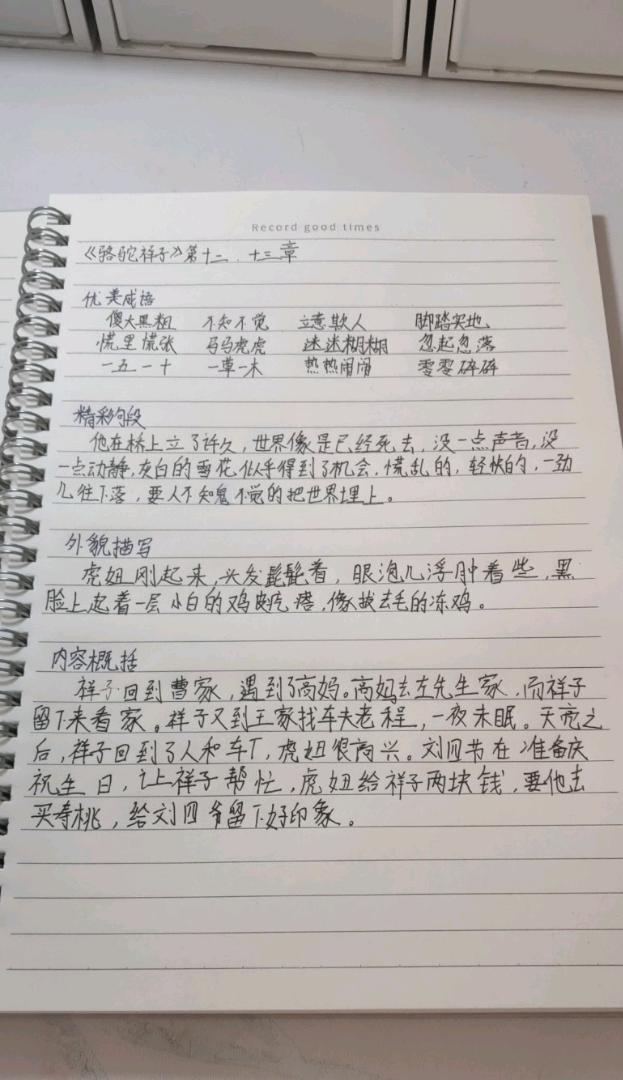 Record good times
《骆驼祥子》第十二、十三章
优美成语
傻大黑粗 不知不觉 立意欺人 脚踏实地
慌里慌张 马马虎虎 迷迷糊糊 忽起忽落
一五一十 一草一木 热热闹闹 零零碎碎
精彩句段
他在桥上立了许久,世界像是已经死去,没一点声音,没
一点动静,灰白的雪花似乎得到了机会,慌乱的,轻快的,一劲
儿往下落,要人不知鬼不觉的把世界埋上。
外貌描写
虎妞刚起来,头发髭髭着,眼泡儿浮肿着些,黑
脸上起着一层小白的鸡皮疙瘩,像拔去毛的冻鸡。
内容概括
祥子回到曹家,遇到了高妈。高妈去左先生家,而祥子
留下来看家。祥子又到王家找车夫老程,一夜未眠。天亮之
后,祥子回到了人和车厂,虎妞很高兴。刘四爷在准备庆
祝生日,让祥子帮忙,虎妞给祥子两块钱,要他去
买寿桃,给刘四爷留下好印象。